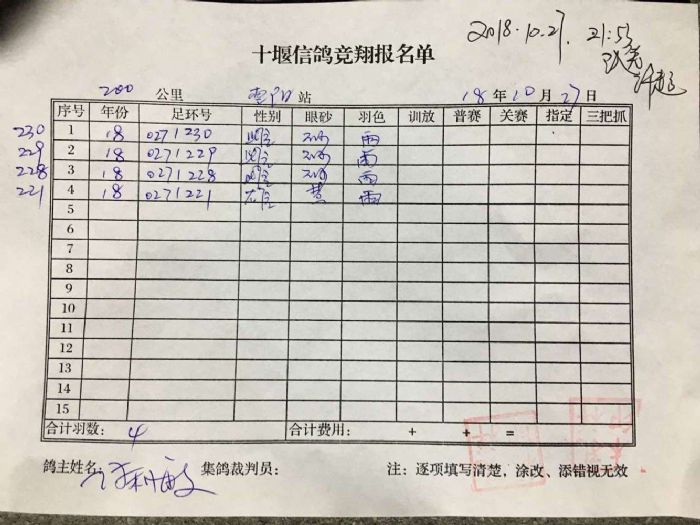 2018.10.27. 21:55
十堰信鸽竞翔报名单
200 公里 站 18 年 10 月 27 日
序号 年份 足环号 性别 眼砂 羽色 训放 普赛 关赛 指定 三把抓
230 1 18 0271230 雌 砂 雨
229 2 18 0271229 雌 砂 雨
228 3 18 0271228 雌 砂 雨
221 4 18 0271221 雄 黄 雨
5
6
7
8
9
10
11
12
13
14
15
合计羽数： 4 合计费用： + + =
鸽主姓名： 集鸽裁判员： 注：逐项填写清楚，涂改、添错视无效